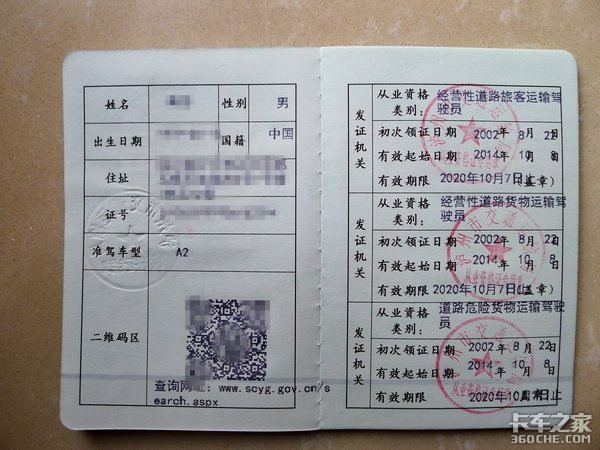 姓名
性别
男
出生日期
国籍
中国
住址
证号
准驾车型
A2
二维码区
查询网址：www.scyg.gov.cn/s
earch.aspx
发证机关
从业资格
类别：
经营性道路旅客运输驾
驶员
初次领证日期 2002年 8月 22日
有效起始日期 2014年 10月 8日
有效期限 2020年10月7日(盖章)
发证机关
从业资格
类别：
经营性道路货物运输驾
驶员
初次领证日期 2002年 8月 22日
有效起始日期 2014年 10月 8日
有效期限 2020年10月7日
发证机关
从业资格
类别：
道路危险货物运输驾驶
员
初次领证日期 2002年 8月 22日
有效起始日期 2014年 10月 8日
有效期限 2020年10月
卡车之家
360CHE.COM